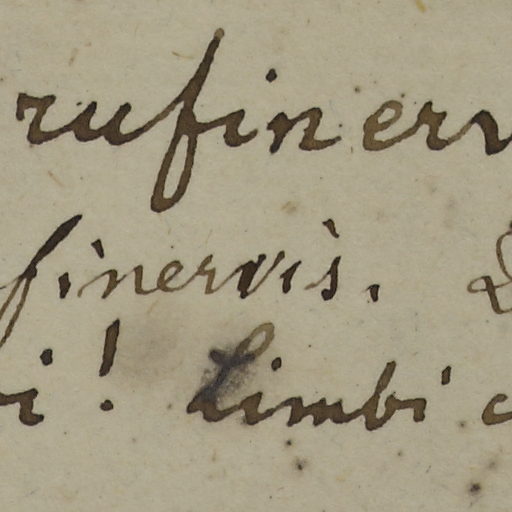 rufinerv
finervis. D
i! Limbi c